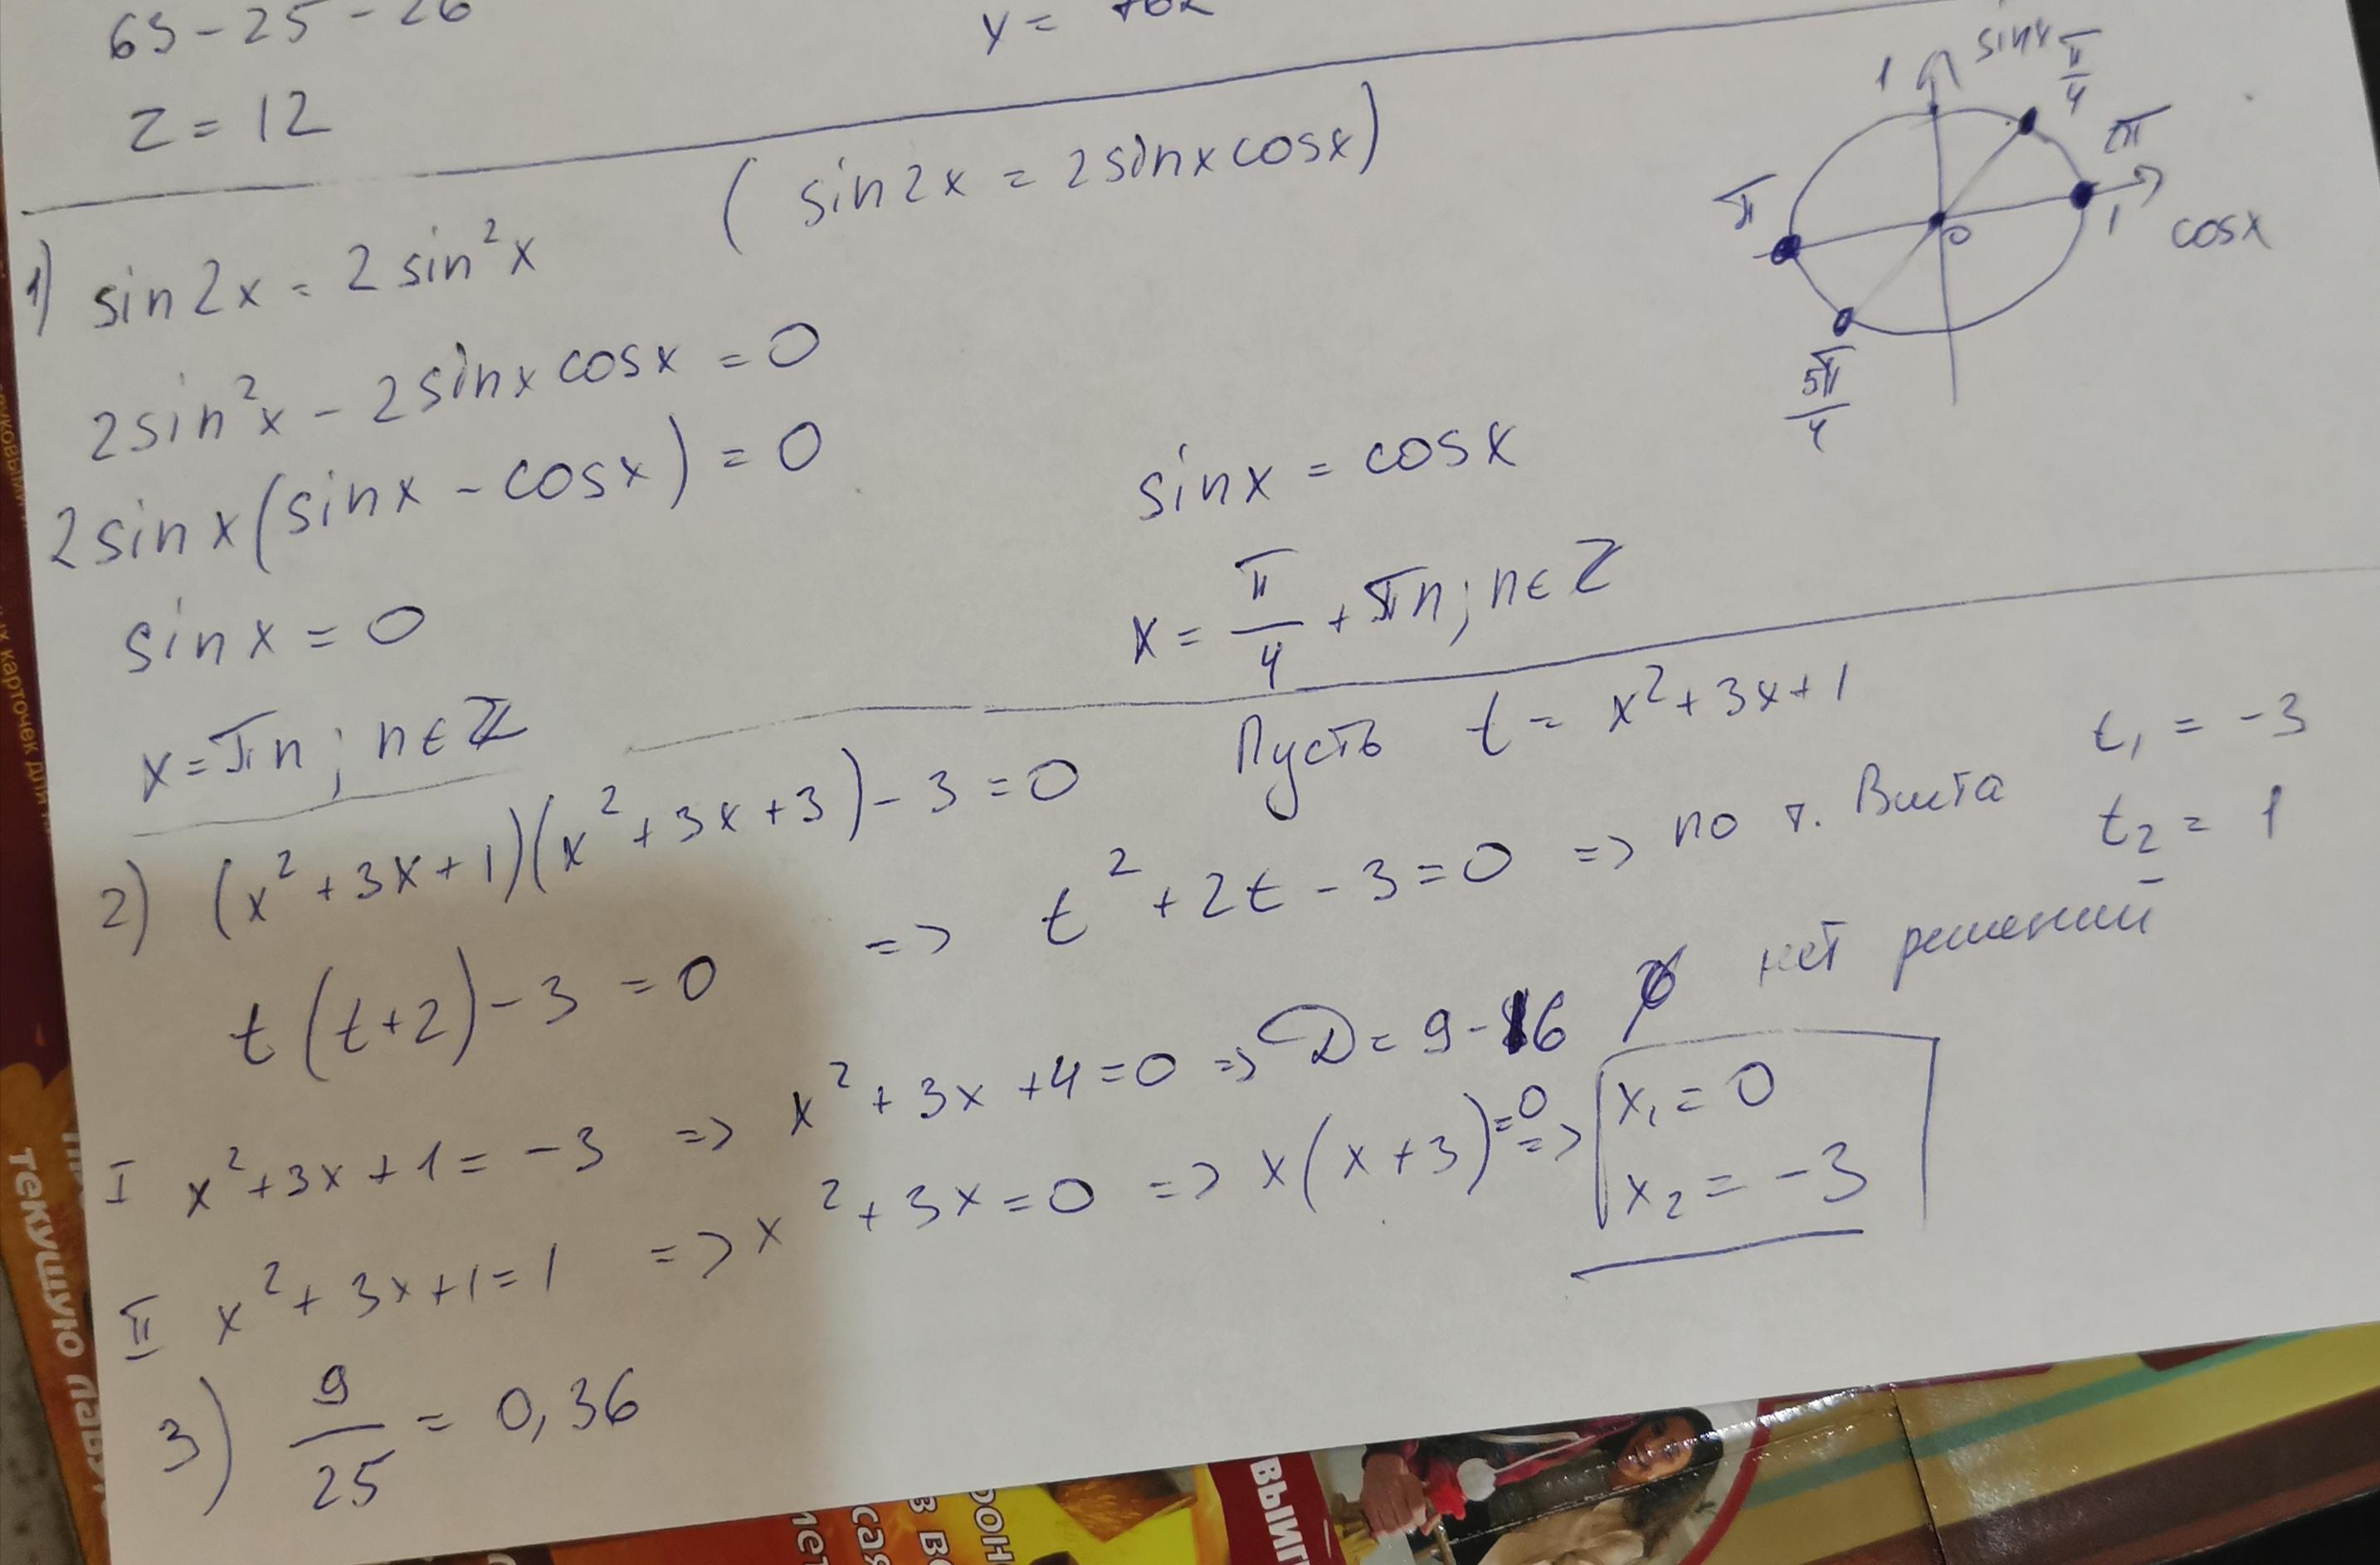 63 - 25 - 26
y =
z = 12
(sin2x = 2sinxcosx)
1) sin2x = 2sin²x
2sin²x - 2sinxcosx = 0
2sinx(sinx - cosx) = 0
sinx = 0
x = πn; n∈Z
sinx = cosx
x = π/4 + πn; n∈Z
1
sinx
π/4
π
π
0
1
cosx
5π/4
2) (x²+3x+1)(x²+3x+3) - 3 = 0
Пусть t = x²+3x+1
t(t+2) - 3 = 0 => t² + 2t - 3 = 0 => по т. Виета
t₁ = -3
t₂ = 1
I x²+3x+1 = -3 => x²+3x+4=0 => D = 9-16 нет решений
II x²+3x+1=1 => x²+3x=0 => x(x+3)=0 =>
x₁ = 0
x₂ = -3
3) 9/25 = 0,36
текущую
ВЫИГ